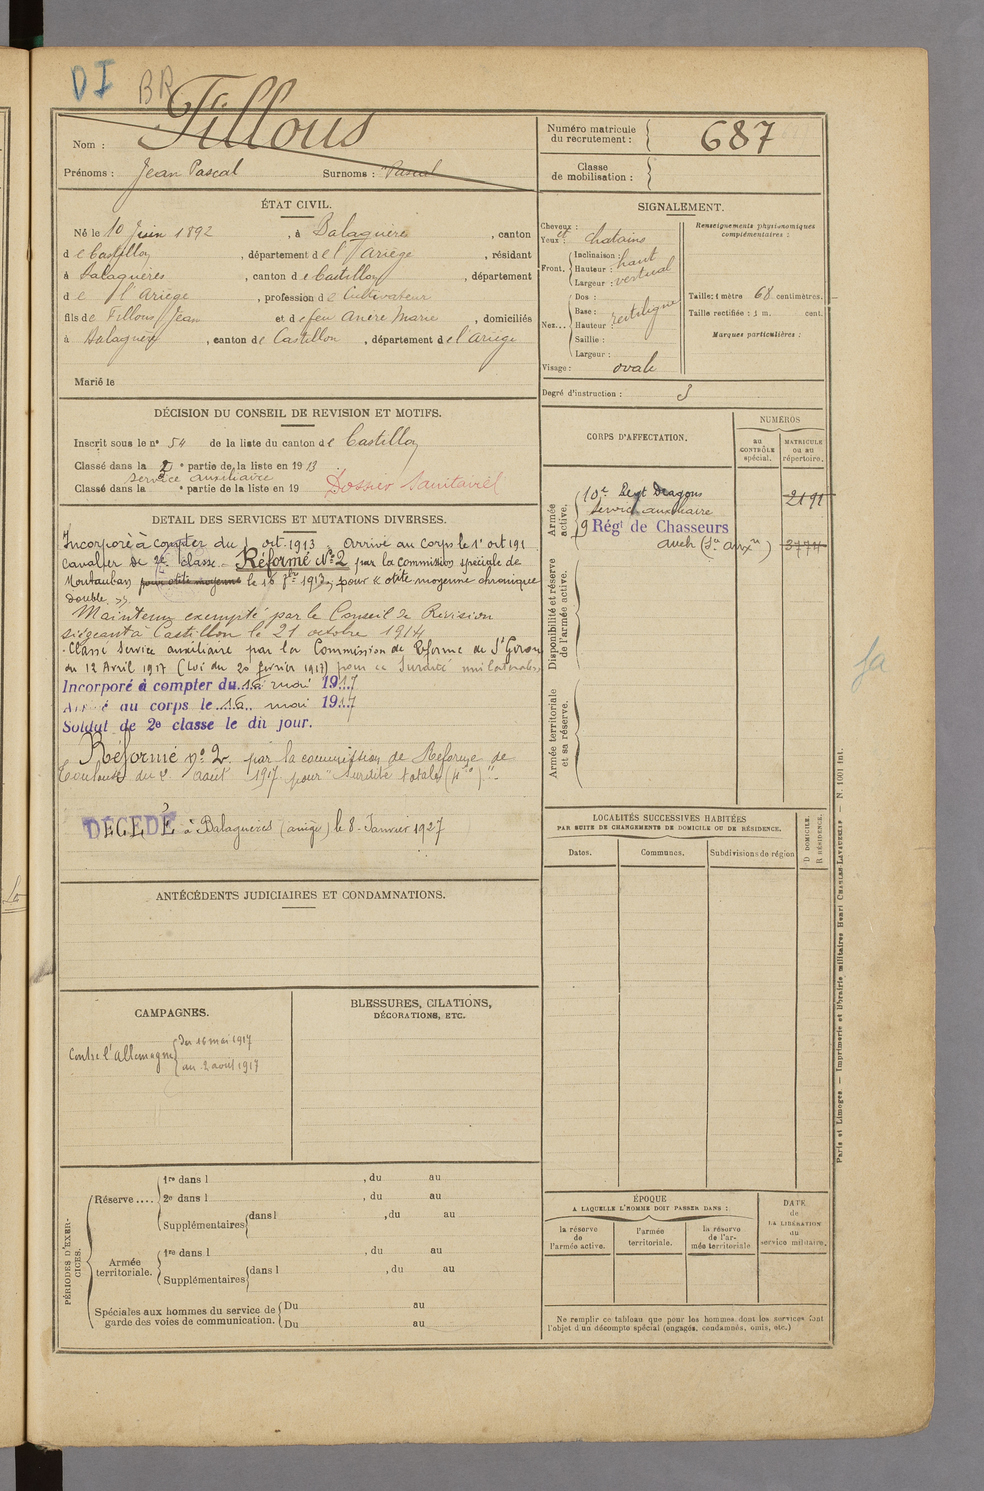 DI BR
Nom : Fillous
Prénoms : Jean Pascal Surnoms : Pascal
Numéro matricule du recrutement : 687
Classe de mobilisation :
ÉTAT CIVIL.
Né le 10 Juin 1892, à Balaguères, canton
de Castillon, département de l'Ariège, résidant
à Balaguères, canton de Castillon, département
de l'Ariège, profession de Cultivateur
fils de Fillous Jean et de feu Anère Marie, domiciliés
à Balaguères, canton de Castillon, département de l'Ariège
Marié le
SIGNALEMENT.
Cheveux : et
Yeux : chatains
Front. Inclinaison : haut
Hauteur : vertical
Largeur :
Nez... Dos :
Base : rectiligne
Hauteur :
Saillie :
Largeur :
Visage : ovale
Renseignements physionomiques complémentaires :
Taille : 1 mètre 68 centimètres.
Taille rectifiée : 1 m. cent.
Marques particulières :
Degré d'instruction : 3
DÉCISION DU CONSEIL DE REVISION ET MOTIFS.
Inscrit sous le n° 54 de la liste du canton de Castillon
Classé dans la 2e partie de la liste en 1913
service auxiliaire
Classé dans la e partie de la liste en 19
Dossier Sanitaire
DÉTAIL DES SERVICES ET MUTATIONS DIVERSES.
Incorporé à compter du 1 oct. 1913 Arrivé au corps le 1r oct 191
cavalier de 2e classe. Réformé No 2 par la commission spéciale de
Montauban pour otite moyenne le 18 1913 pour « otite moyenne chronique
double. »
Maintenu exempté par le Conseil de Revision
siégeant à Castillon le 21 octobre 1914
Classé Service auxiliaire par la Commission de Réforme de St Girons
du 12 Avril 1917 (Loi du 20 février 1917) pour surdité unilatérale
Incorporé à compter du 16 mai 1917
Arrivé au corps le 16 mai 1917
Soldat de 2e classe le dit jour.
Réformé no 2 par la commission de Réforme de
Toulouse du 2 août 1917 pour "surdité totale
DÉCÉDÉ à Balaguères (ariège) le 8 Janvier 1927
CORPS D'AFFECTATION.
NUMÉROS
au CONTRÔLE spécial.
MATRICULE ou au répertoire.
Armée active.
10e Regt Dragons 2191
Service auxiliaire
9 Régt de Chasseurs
Auch (Sce auxre) 3774
Disponibilité et réserve de l'armée active.
Armée territoriale et sa réserve.
LOCALITÉS SUCCESSIVES HABITÉES
PAR SUITE DE CHANGEMENTS DE DOMICILE OU DE RÉSIDENCE.
Dates. Communes. Subdivisions de région D DOMICILE. R RÉSIDENCE.
ANTÉCÉDENTS JUDICIAIRES ET CONDAMNATIONS.
CAMPAGNES.
Contre l'Allemagne du 16 mai 1917
au 2 août 1917
BLESSURES, CITATIONS,
DÉCORATIONS, ETC.
PÉRIODES D'EXERCICES.
Réserve .... 1re dans l , du au
2e dans l , du au
Supplémentaires dans l , du au
Armée territoriale. 1re dans l , du au
Supplémentaires dans l , du au
Spéciales aux hommes du service de garde des voies de communication. Du au
Du au
ÉPOQUE
A LAQUELLE L'HOMME DOIT PASSER DANS :
la réserve de l'armée active.
l'armée territoriale.
la réserve de l'armée territoriale
DATE de LA LIBÉRATION du service militaire.
Ne remplir ce tableau que pour les hommes dont les services font
l'objet d'un décompte spécial (engagés, condamnés, omis, etc.)
Paris et Limoges. — Imprimerie et librairie militaires Henri CHARLES-LAVAUZELLE — N. 1001 Int.